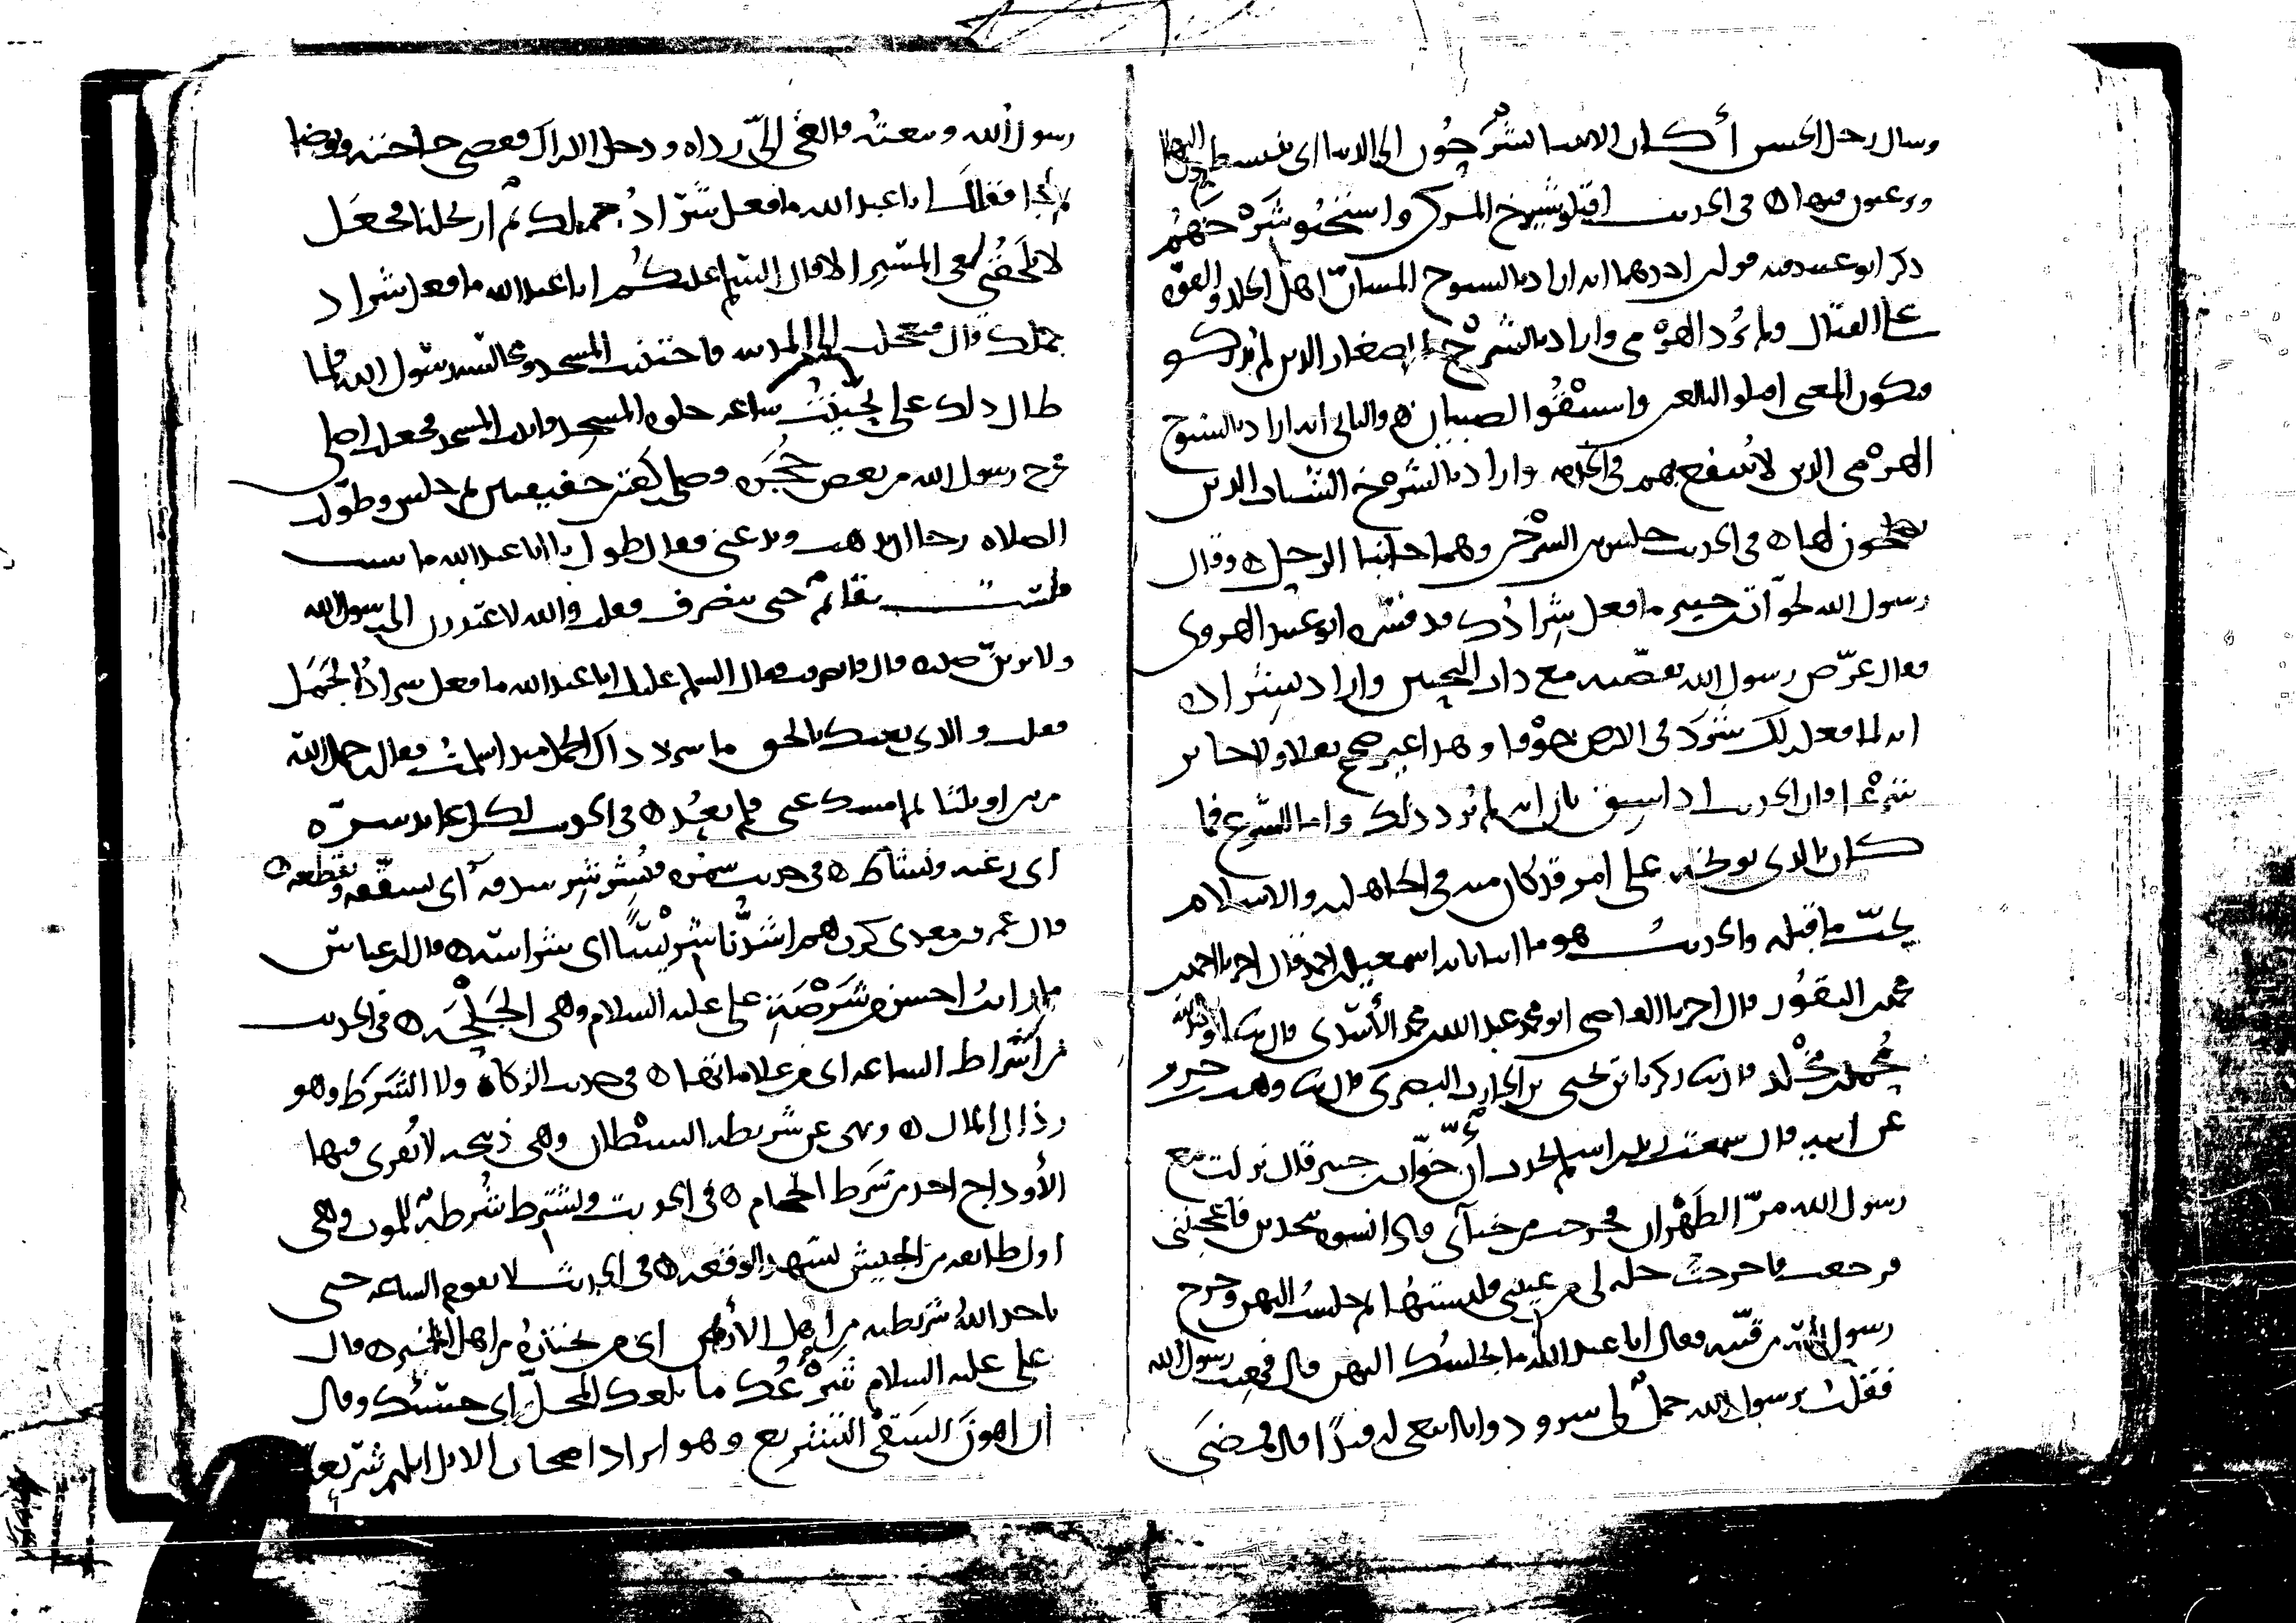 وسأل رجل الحسن أكان الأنبياء يشرحون إلى الدنيا أي ينبسطون إليها
ويرغبون فيها ٥ في الحديث اقتلوا شيوخ المشركين واستحيوا شرخهم
ذكر أبو عبيد فيه قولين احدهما انه اراد بالشيوخ المسانّ اهل الجلد والقوة
على القتال ولم يُرد الهرمى واراد بالشرخ الصغار الذين لم يدركوا
فيكون المعنى اقتلوا البالغين واستبقوا الصبيان ٥ والثاني انه اراد بالشيوخ
الهرمى الذين لا يُنتفع بهم في الخدمة واراد بالشرخ الشباب الذين
يصلحون لها ٥ في الحديث جلس بين الشرخين وهما جانبا الرحل ٥ وقال
رسول الله لخوّات بن جبير ما فعل شرادك قد فسّره ابو عبيد الهروي
فقال عرّض رسول الله بقصّته مع ذات النحيين واراد بشراده
انه لما فعل ذلك شرد في الارض خوفا وهذا غير صحيح نقلا ولا جايز
شرعا وان الحديث اذا سيق بان انه لم يُرد ذلك واما الشرع فما
كان بالذي يوبخه على امر قد كان منه في الجاهلية والاسلام
يجبّ ما قبله والحديث هو ما انبانا به اسمعيل بن احمد قال اخبرنا احمد بن
محمد بن النقور قال اخبرنا القاضي ابو محمد عبد الله بن محمد الأسدي قال ثنا ابو عبد الله
محمد بن مخلد قال ثنا زكريا بن يحيى بن الحارث البصري قال ثنا وهب بن جرير
عن ابيه قال سمعت زيد بن اسلم يحدث أنّ خوّات بن جبير قال نزلت مع
رسول الله مرّ الظهران فخرجت من خبائي فاذا نسوة يتحدثن فاعجبنني
فرجعت فاخرجت حلة لي من عيبتي فلبستها ثم جلست اليهن وخرج
رسول الله من قبّته فقال ابا عبد الله ما يجلسك اليهن قال فهبت رسول الله
فقلت يا رسول الله جمل لي شرود وانا ابتغي له قيدا قال فمضى
رسول الله وتبعته فالقى إليّ رداه ودخل الاراك فقضى حاجته وتوضا
ثم جا فقال ابا عبد الله ما فعل شرادُ جملك ثم ارتحلنا فجعل
لا يلحقني في المسير الا قال السلم عليكم ابا عبد الله ما فعل شراد
جملك قال فتعجلت الى المدينه فاجتنبت المسجد ومجالسة رسول الله فلما
طال ذلك علي تحيّنت ساعة خلوة المسجد فاتيت المسجد فجعلت اصلي
فخرج رسول الله من بعض حُجَره وصلى ركعتين خفيفتين ثم جلس وطولت
الصلاه رجا ان يذهب ويدعني فقال طول يا ابا عبد الله ما شيت
فلست بقائم حتى تنصرف فقلت والله لاعتذرن الى رسول الله
ولابرئن صدره قال فانصرفت فقال السلم عليك ابا عبد الله ما فعل شراد الجمل
فقلت والذي بعثك بالحق ما شرد ذاك الجمل منذ اسلمت فقال رحمك الله
مرتين او ثلثا ثم امسك عني فلم يعد ٥ في الحديث لكل عابد شرّه
اي رغبه ونشاط ٥ في حديث فيُشرشر شدقه أي يشققه ويقطعه ٥
قال عمرو بن معدي كرب هم اشدّنا شريسًا اي شراسه ٥ قال ابن عباس
ما رايت احسن من شرصة علي عليه السلام وهي الجَلحه ٥ في الحديث
من اشراط الساعه اي من علاماتها ٥ في حديث الزكاة ولا الشرط وهو
رذال المال ٥ ونهى عن شريطه الشيطان وهي ذبيحه لا تُفرى فيها
الأوداج اخذ من شرط الحجام ٥ في الحديث وتشترط شُرطة للموت وهي
اول طائفه من الجيش تشهد الوقعه ٥ في الحديث لا تقوم الساعه حتى
ياخذ اللهُ شريطته من اهل الأرض اي من يختاره من اهل الخير ٥ قال
علي عليه السلام شرعُك ما بلغك المحلّ اي حسبك وقال
ان اهون السقي التشريع وهو ايراد اصحاب الابل ابلهم شريعة